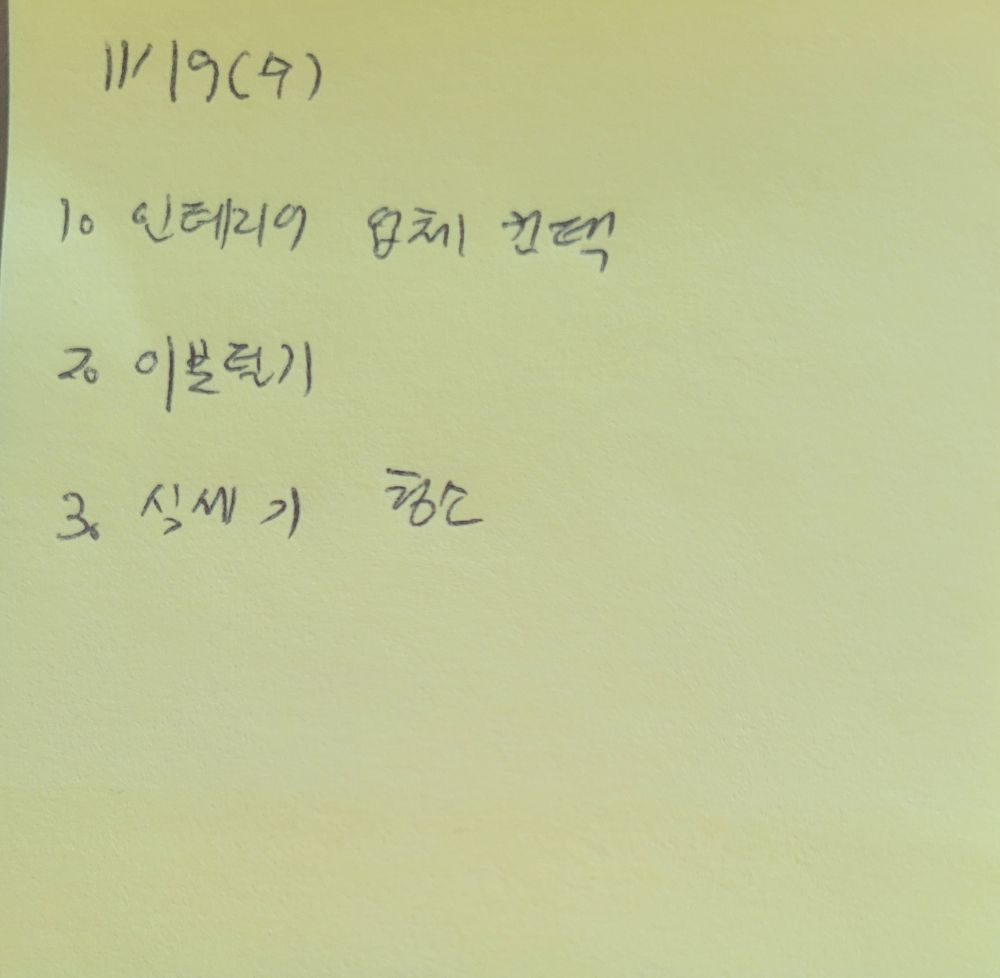 11/19(수)
1. 인테리어 업체 컨택
2. 이불털기
3. 식세기 청소